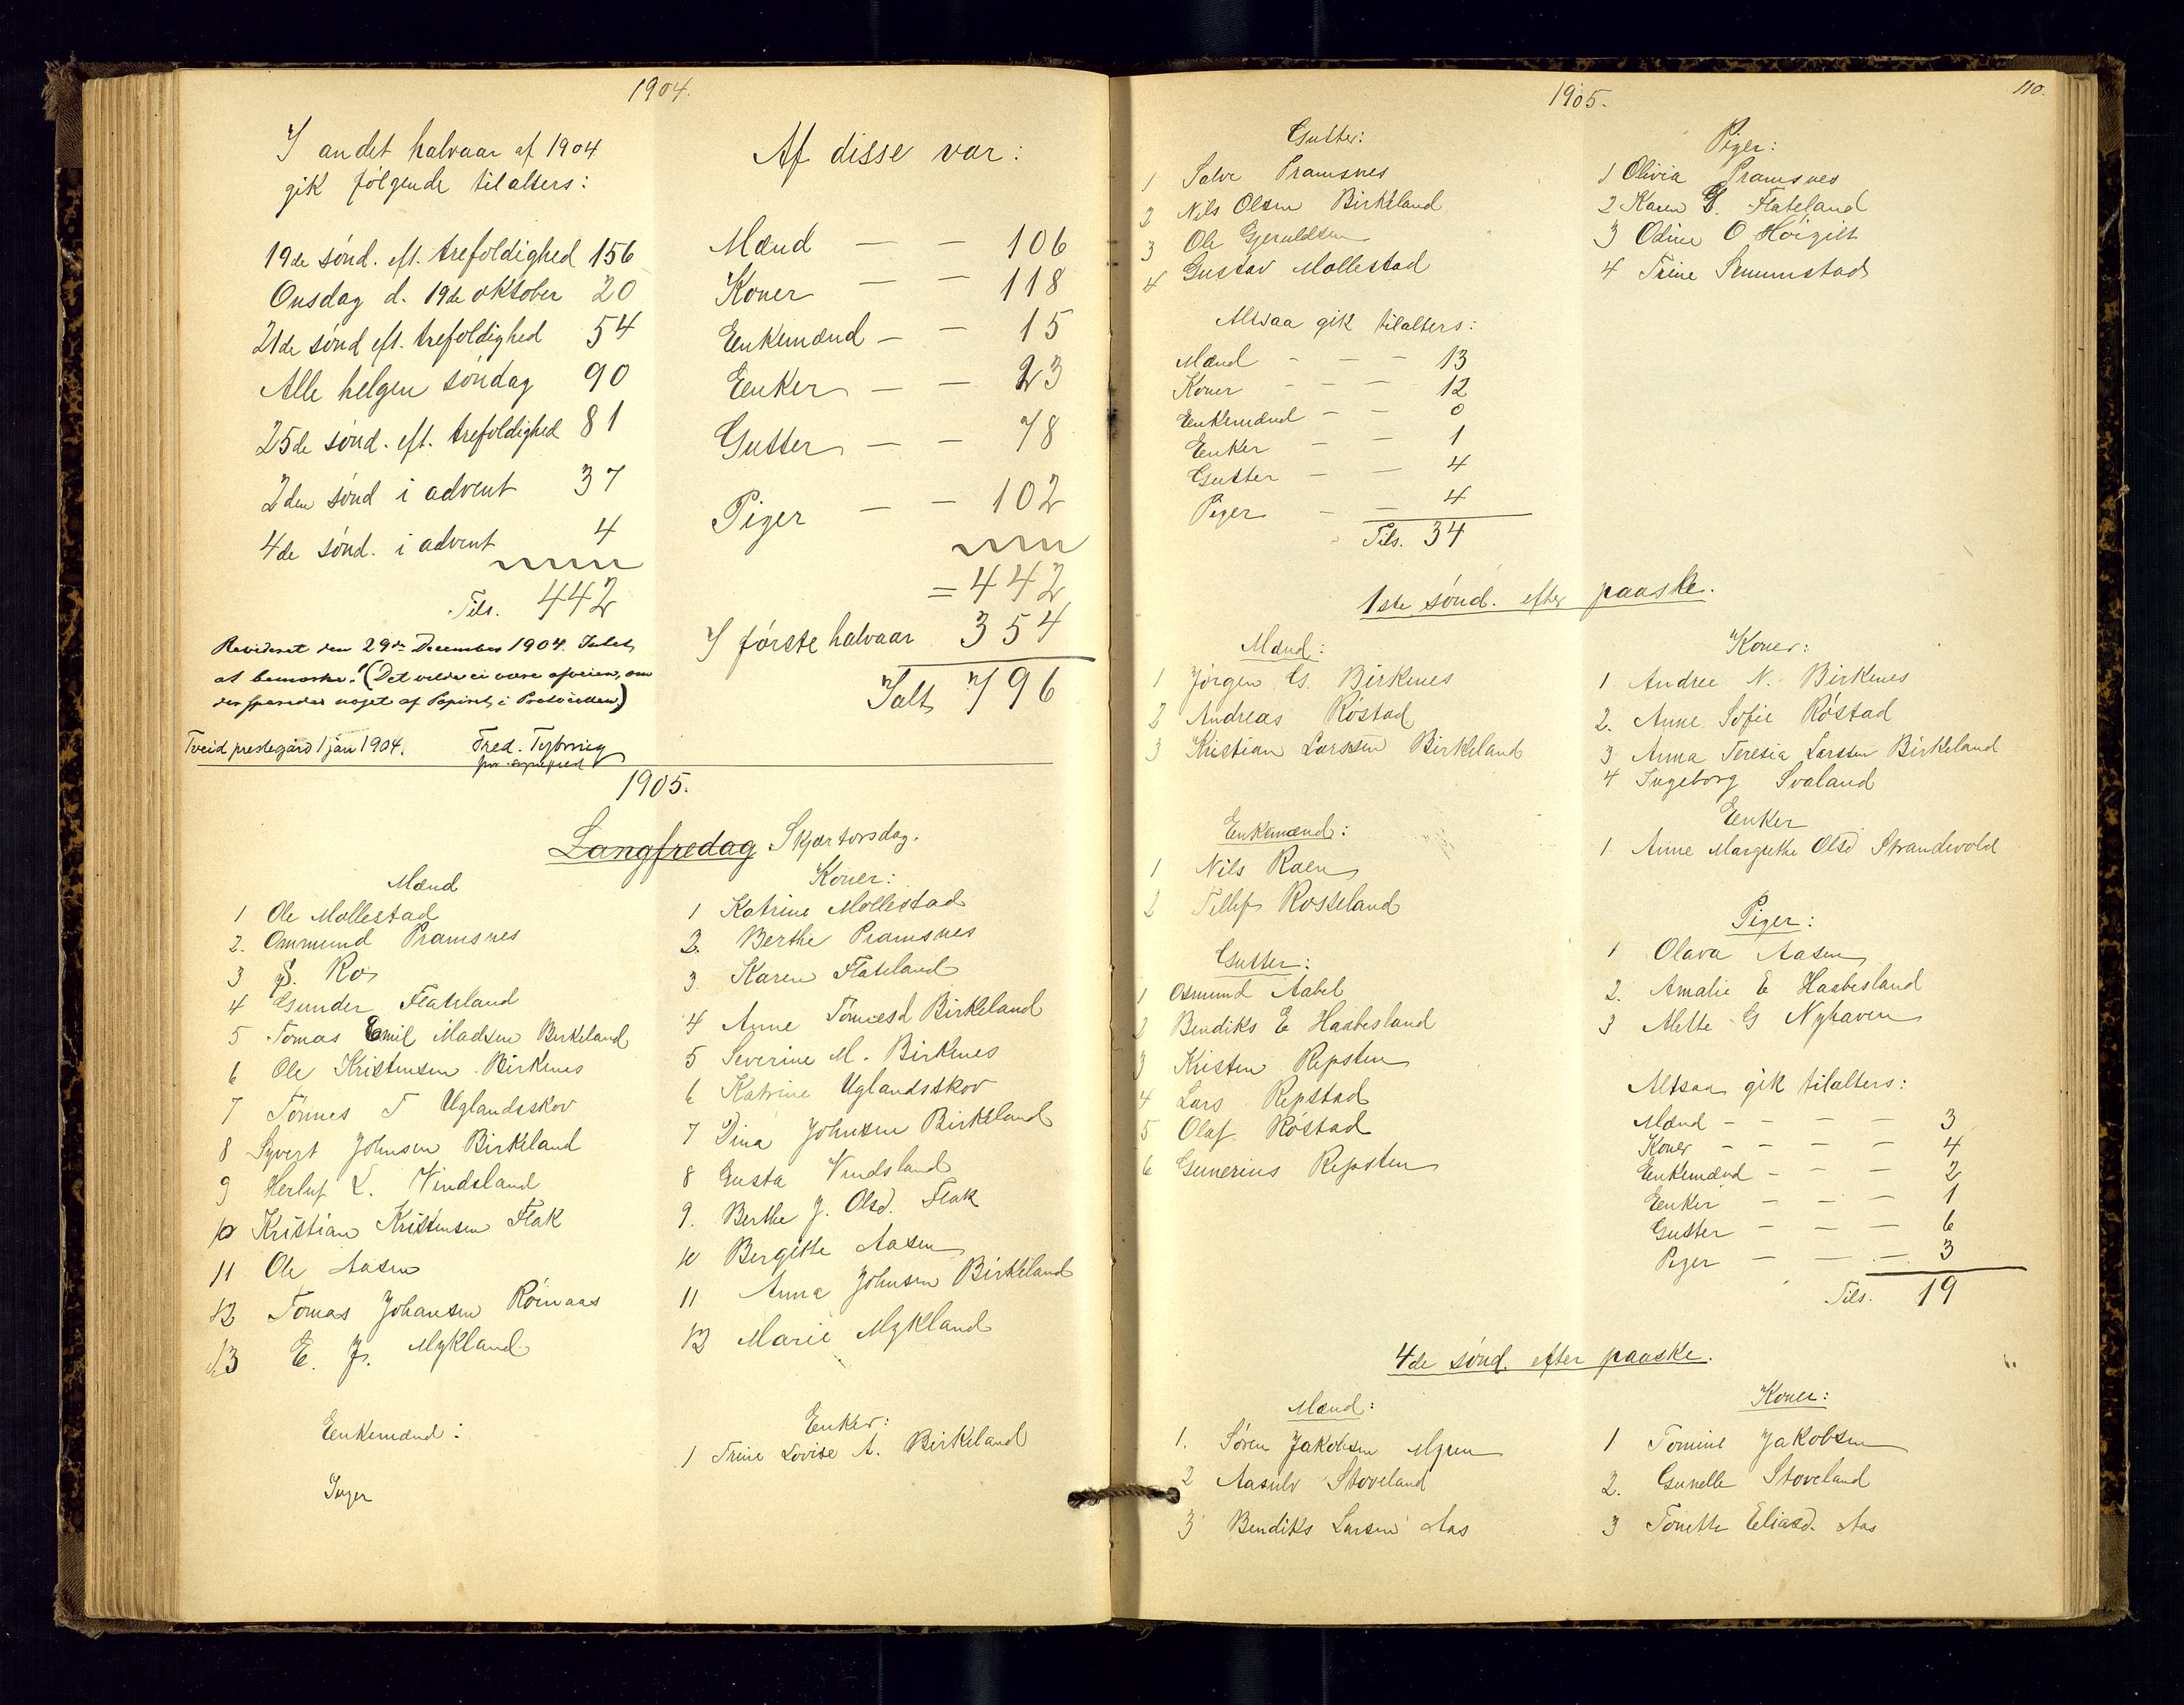 1904.
I andet halvaar af 1904
gik følgende tilalters:
19de sönd. eft. trefoldighed 156
Onsdag d. 19de oktober 20
21de sönd eft. trefoldighed 54
Alle helgen söndag 90
25de sönd. eft. trefoldighed 81
2den sönd i advent 37
4de sönd. i advent 4
Tils. 442
Revideret den 29de December 1904. Intet
at bemærke. (Det vilde ei være afveien, om
der sparedes noget af Papiret i Protocollen)
Tveid prestegård 1 jan 1904. Fred.
Af disse var:
Mænd — — 106
Koner — — 118
Enkemænd — — 15
Enker — — 23
Gutter — — 78
Piger — — 102
= 442
I förste halvaar 354
Ialt 796
1905.
Langfredag Skjærtorsdag.
Mænd
1 Ole Mollestad
2. Ommund Pramsnes
3 S. Ros
4 Gunder Flateland
5 Tomas Emil Madsen Birkeland
6 Ole Kristensen Birkenes
7 Tönnes T Uglandsskov
8 Syvert Johnsen Birkeland
9 Herluf L. Vindsland
10 Kristian Kristensen Flak
11 Ole Aasen
12 Tomas Johansen Röinaas
13 E. J. Mykland
Enkemænd:
Inger
Koner:
1 Katrine Mollestad
2. Berthe Pramsnes
3. Karen Flateland
4 Anne Tönnesd Birkeland
5 Severine M. Birkenes
6 Katrine Uglandsskov
7 Dina Johnsen Birkeland
8 Gusta Vindsland
9. Berthe J. Olsd. Flak
10 Bergitte Aasen
11 Anna Johnsen Birkeland
12 Marie Mykland
Enker:
1 Trine Lovise A. Birkeland
1905.
110.
Gutter:
1 Salve Pramsnes
2 Nils Olsen Birkeland
3 Ole Gjeruldsen
4 Gustav Mollestad
Piger:
1 Olivia Pramsnes
2 Karen G. Flateland
3 Odine O Höigilt
4 Trine Senumstad
Altsaa gik tilalters:
Mænd - - - 13
Koner - - - 12
Enkemænd - - 0
Enker - - 1
Gutter - - 4
Piger - - 4
Tils. 34
1ste sönd. efter paaske.
Mænd:
1 Jörgen G. Birkenes
2 Andreas Röstad
3 Kristian Larssen Birkeland
Koner:
1 Andree N. Birkenes
2. Anne Sofie Röstad
3. Anna Teresia Larssen Birkeland
4 Ingeborg Svaland
Enkemænd:
1 Nils Raen
2 Tellef Rosseland
Enker
1. Anne Margrethe Olsd Strandvold
Gutter:
1 Osmund Aabel
2 Bendiks E Haabesland
3 Kristen Repsten
4 Lars Repstad
5 Olaf Röstad
6 Gunerius Repsten
Piger:
1 Olava Aasen
2. Amalie E Haabesland
3 Mette G Nyhaven
Altsaa gik tilalters:
Mænd - - - - 3
Koner - - - - 4
Enkemænd - - - 2
Enker - - - 1
Gutter - - - 6
Piger - - - 3
Tils. 19
4de sönd. efter paaske.
Mænd:
1. Sören Jakobsen Myren
2 Aasulv Stoveland
3 Bendiks Larsen Aas
Koner:
1 Tomine Jakobsen
2. Gunelle Stoveland
3 Tonette Eliasd. Aas